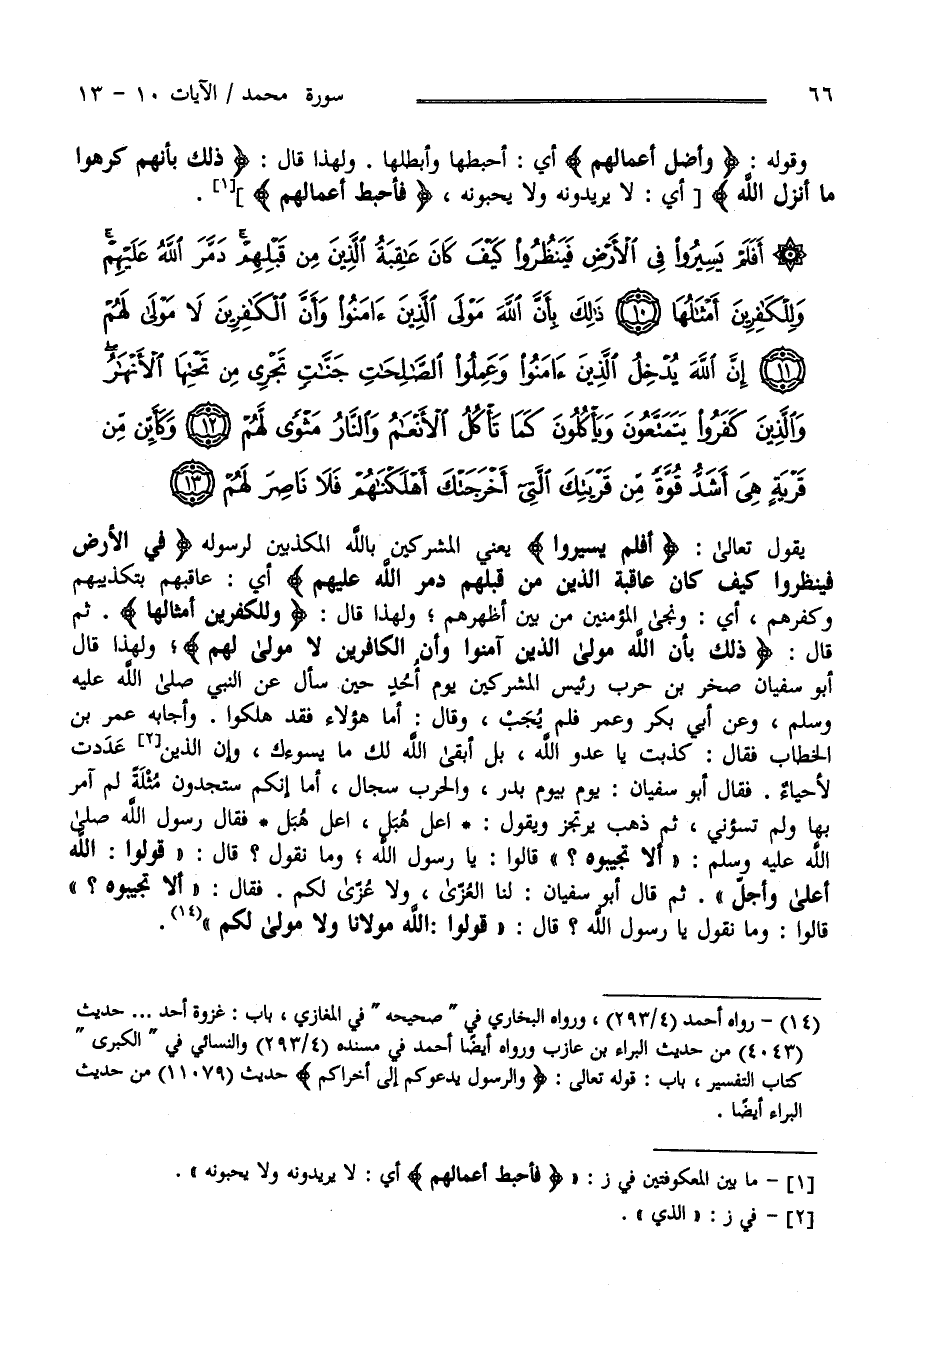 ٦٦ سورة محمد / الآيات ١٠ - ١٣
وقوله : ﴿ وأضل أعمالهم ﴾ أي : أحبطها وأبطلها . ولهذا قال : ﴿ ذلك بأنهم كرهوا
ما أنزل اللَّه ﴾ [ أي : لا يريدونه ولا يحبونه ، ﴿ فأحبط أعمالهم ﴾ ][١] .
۞ أَفَلَمْ يَسِيرُوا۟ فِى ٱلْأَرْضِ فَيَنظُرُوا۟ كَيْفَ كَانَ عَٰقِبَةُ ٱلَّذِينَ مِن قَبْلِهِمْ ۚ دَمَّرَ ٱللَّهُ عَلَيْهِمْ ۖ
وَلِلْكَٰفِرِينَ أَمْثَٰلُهَا ﴿١٠﴾ ذَٰلِكَ بِأَنَّ ٱللَّهَ مَوْلَى ٱلَّذِينَ ءَامَنُوا۟ وَأَنَّ ٱلْكَٰفِرِينَ لَا مَوْلَىٰ لَهُمْ
﴿١١﴾ إِنَّ ٱللَّهَ يُدْخِلُ ٱلَّذِينَ ءَامَنُوا۟ وَعَمِلُوا۟ ٱلصَّٰلِحَٰتِ جَنَّٰتٍ تَجْرِى مِن تَحْتِهَا ٱلْأَنْهَٰرُ ۖ
وَٱلَّذِينَ كَفَرُوا۟ يَتَمَتَّعُونَ وَيَأْكُلُونَ كَمَا تَأْكُلُ ٱلْأَنْعَٰمُ وَٱلنَّارُ مَثْوًى لَّهُمْ ﴿١٢﴾ وَكَأَيِّن مِّن
قَرْيَةٍ هِىَ أَشَدُّ قُوَّةً مِّن قَرْيَتِكَ ٱلَّتِىٓ أَخْرَجَتْكَ أَهْلَكْنَٰهُمْ فَلَا نَاصِرَ لَهُمْ ﴿١٣﴾
يقول تعالىٰ : ﴿ أفلم يسيروا ﴾ يعني المشركين باللَّه المكذبين لرسوله ﴿ في الأرض
فينظروا كيف كان عاقبة الذين من قبلهم دمر اللَّه عليهم ﴾ أي : عاقبهم بتكذيبهم
وكفرهم ، أي : ونجىٰ المؤمنين من بين أظهرهم ؛ ولهذا قال : ﴿ وللكفرين أمثالها ﴾ . ثم
قال : ﴿ ذلك بأن اللَّه مولىٰ الذين آمنوا وأن الكافرين لا مولىٰ لهم ﴾؛ ولهذا قال
أبو سفيان صخر بن حرب رئيس المشركين يوم أُحُدٍ حين سأل عن النبي صلىٰ اللَّه عليه
وسلم ، وعن أبي بكر وعمر فلم يُجَبْ ، وقال : أما هؤلاء فقد هلكوا . وأجابه عمر بن
الخطاب فقال : كذبت يا عدو اللَّه ، بل أبقىٰ اللَّه لك ما يسوءك ، وإن الذين[٢] عَدَدت
لأحياءٌ . فقال أبو سفيان : يوم بيوم بدر ، والحرب سجال ، أما إنكم ستجدون مُثْلَةً لم آمر
بها ولم تسؤني ، ثم ذهب يرتجز ويقول : * اعل هُبَل ، اعل هُبَل * فقال رسول اللَّه صلىٰ
اللَّه عليه وسلم : « ألا تجيبوه ؟ » قالوا : يا رسول اللَّه ؛ وما نقول ؟ قال : « قولوا : اللَّه
أعلىٰ وأجلّ » . ثم قال أبو سفيان : لنا العُزّىٰ ، ولا عُزّىٰ لكم . فقال : « ألا تجيبوه ؟ »
قالوا : وما نقول يا رسول اللَّه ؟ قال : « قولوا :اللَّه مولانا ولا مولىٰ لكم »(١٤) .
(١٤) - رواه أحمد (٢٩٣/٤) ، ورواه البخاري في " صحيحه " في المغازي ، باب : غزوة أحد ... حديث
(٤٠٤٣) من حديث البراء بن عازب ورواه أيضًا أحمد في مسنده (٢٩٣/٤) والنسائي في " الكبرى "
كتاب التفسير ، باب : قوله تعالى : ﴿ والرسول يدعوكم إلى أخراكم ﴾ حديث (١١٠٧٩) من حديث
البراء أيضًا .
[١] - ما بين المعكوفتين في ز : « ﴿ فأحبط أعمالهم ﴾ أي : لا يريدونه ولا يحبونه » .
[٢] - في ز : « الذي » .